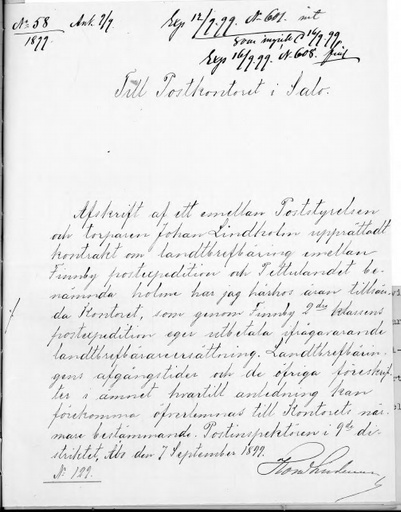 No 58 Ank. 9/9
1899.
Exp 12/9.99. No 601. mit
Svar 14/9.99
Exp 16/9.99. No 608.
Till Postkontoret i Salo.
Afskrift af ett emellan Poststyrelsen
och torparen Johan Lindholm upprättadt
kontrakt om landtbrefbäring emellan
Finnby postexpedition och Pettulandet be-
nämnda holme har jag härhos äran tillsän-
da Kontoret, som genom Finnby 2dra klassens
postexpedition eger utbetala ifrågavarande
landtbrefbärareersättning. Landtbrefbärin-
gens afgångstider och de öfriga föreskrif-
ter i ämnet hvartill anledning kan
förekomma öfverlemnas till Kontorets när-
mare bestämmande. Postinspektören i di-
striktet, Åbo den 7 September 1899.
No 122.